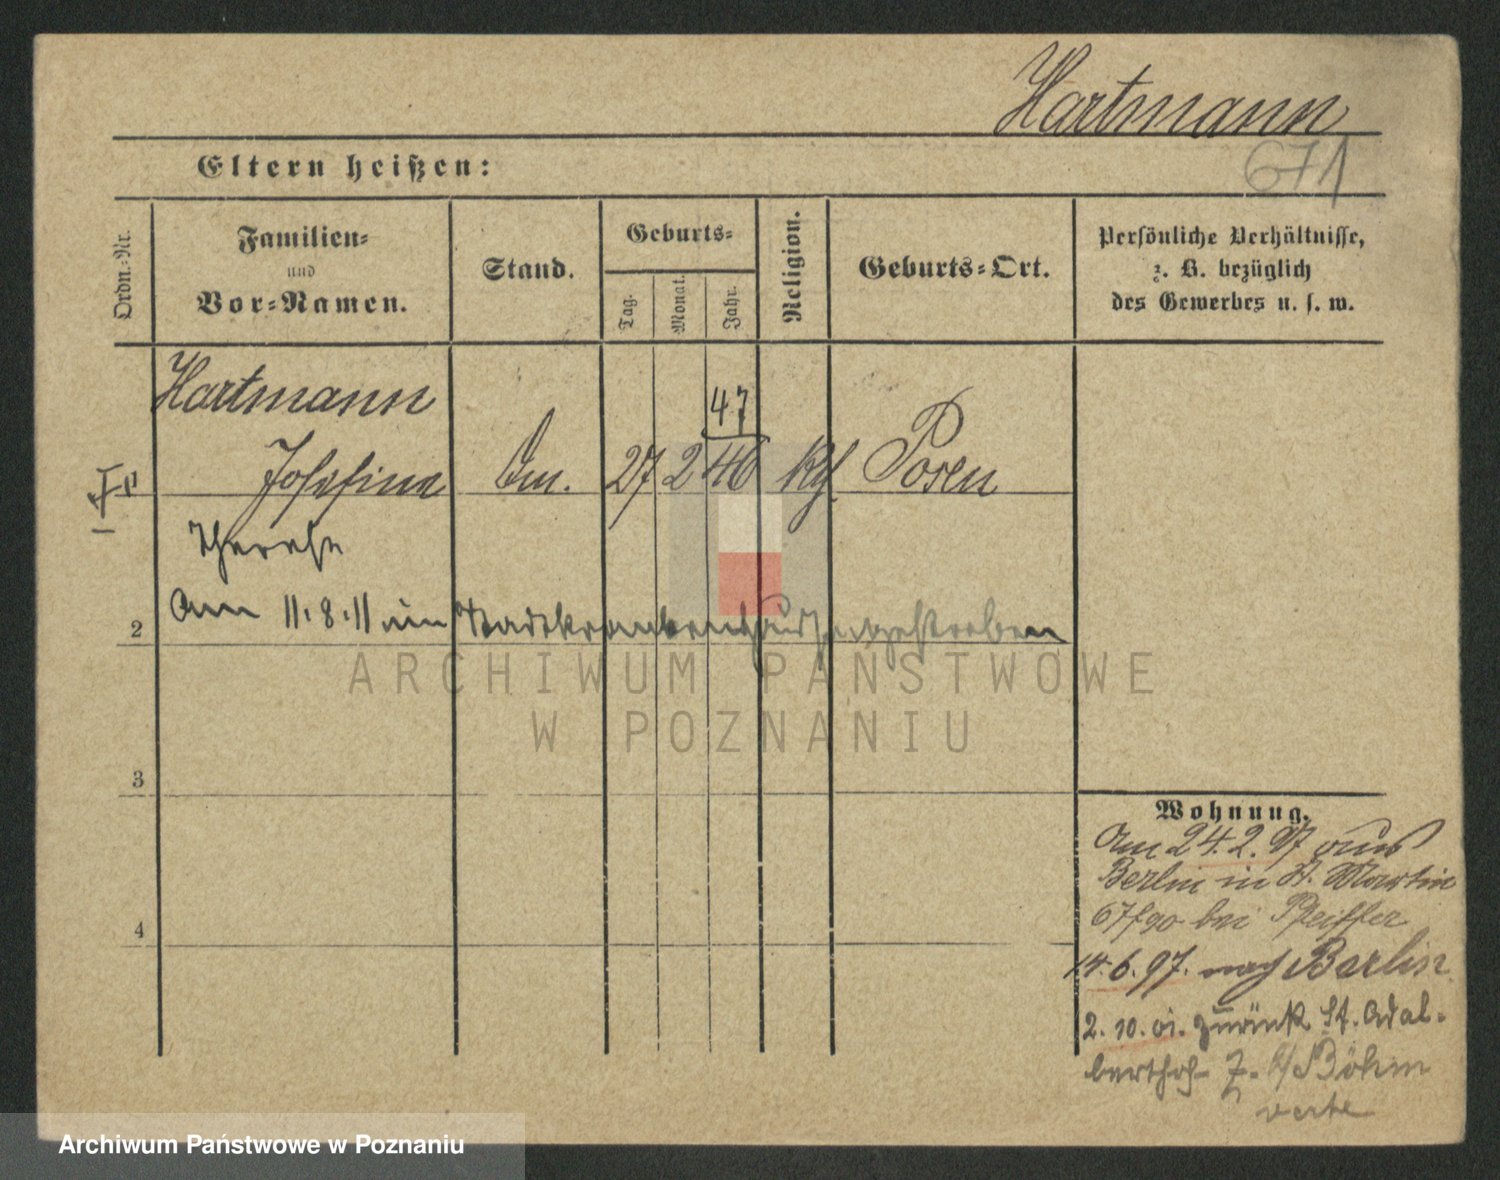 Hartmann
671
Eltern heißen:
Ordn.-Nr.
Familien-
und
Vor-Namen.
Stand.
Geburts-
Tag.
Monat.
Jahr.
Religion.
Geburts-Ort.
Persönliche Verhältnisse,
z. B. bezüglich
des Gewerbes u. s. w.
Hartmann
47
Josefina 27 2 46 Posen
Therese
am 11.8.11 im Stadtkrankenhause gestorben
2
3
4
Wohnung.
Am 24.2.97 aus
Berlin in St. Martin
67 bei Pfeiffer
14.6.97. nach Berlin
2.10.01. zurück St. Adal-
berthof 7. b/ Böhm
verte
ARCHIWUM PAŃSTWOWE
W POZNANIU
Archiwum Państwowe w Poznaniu